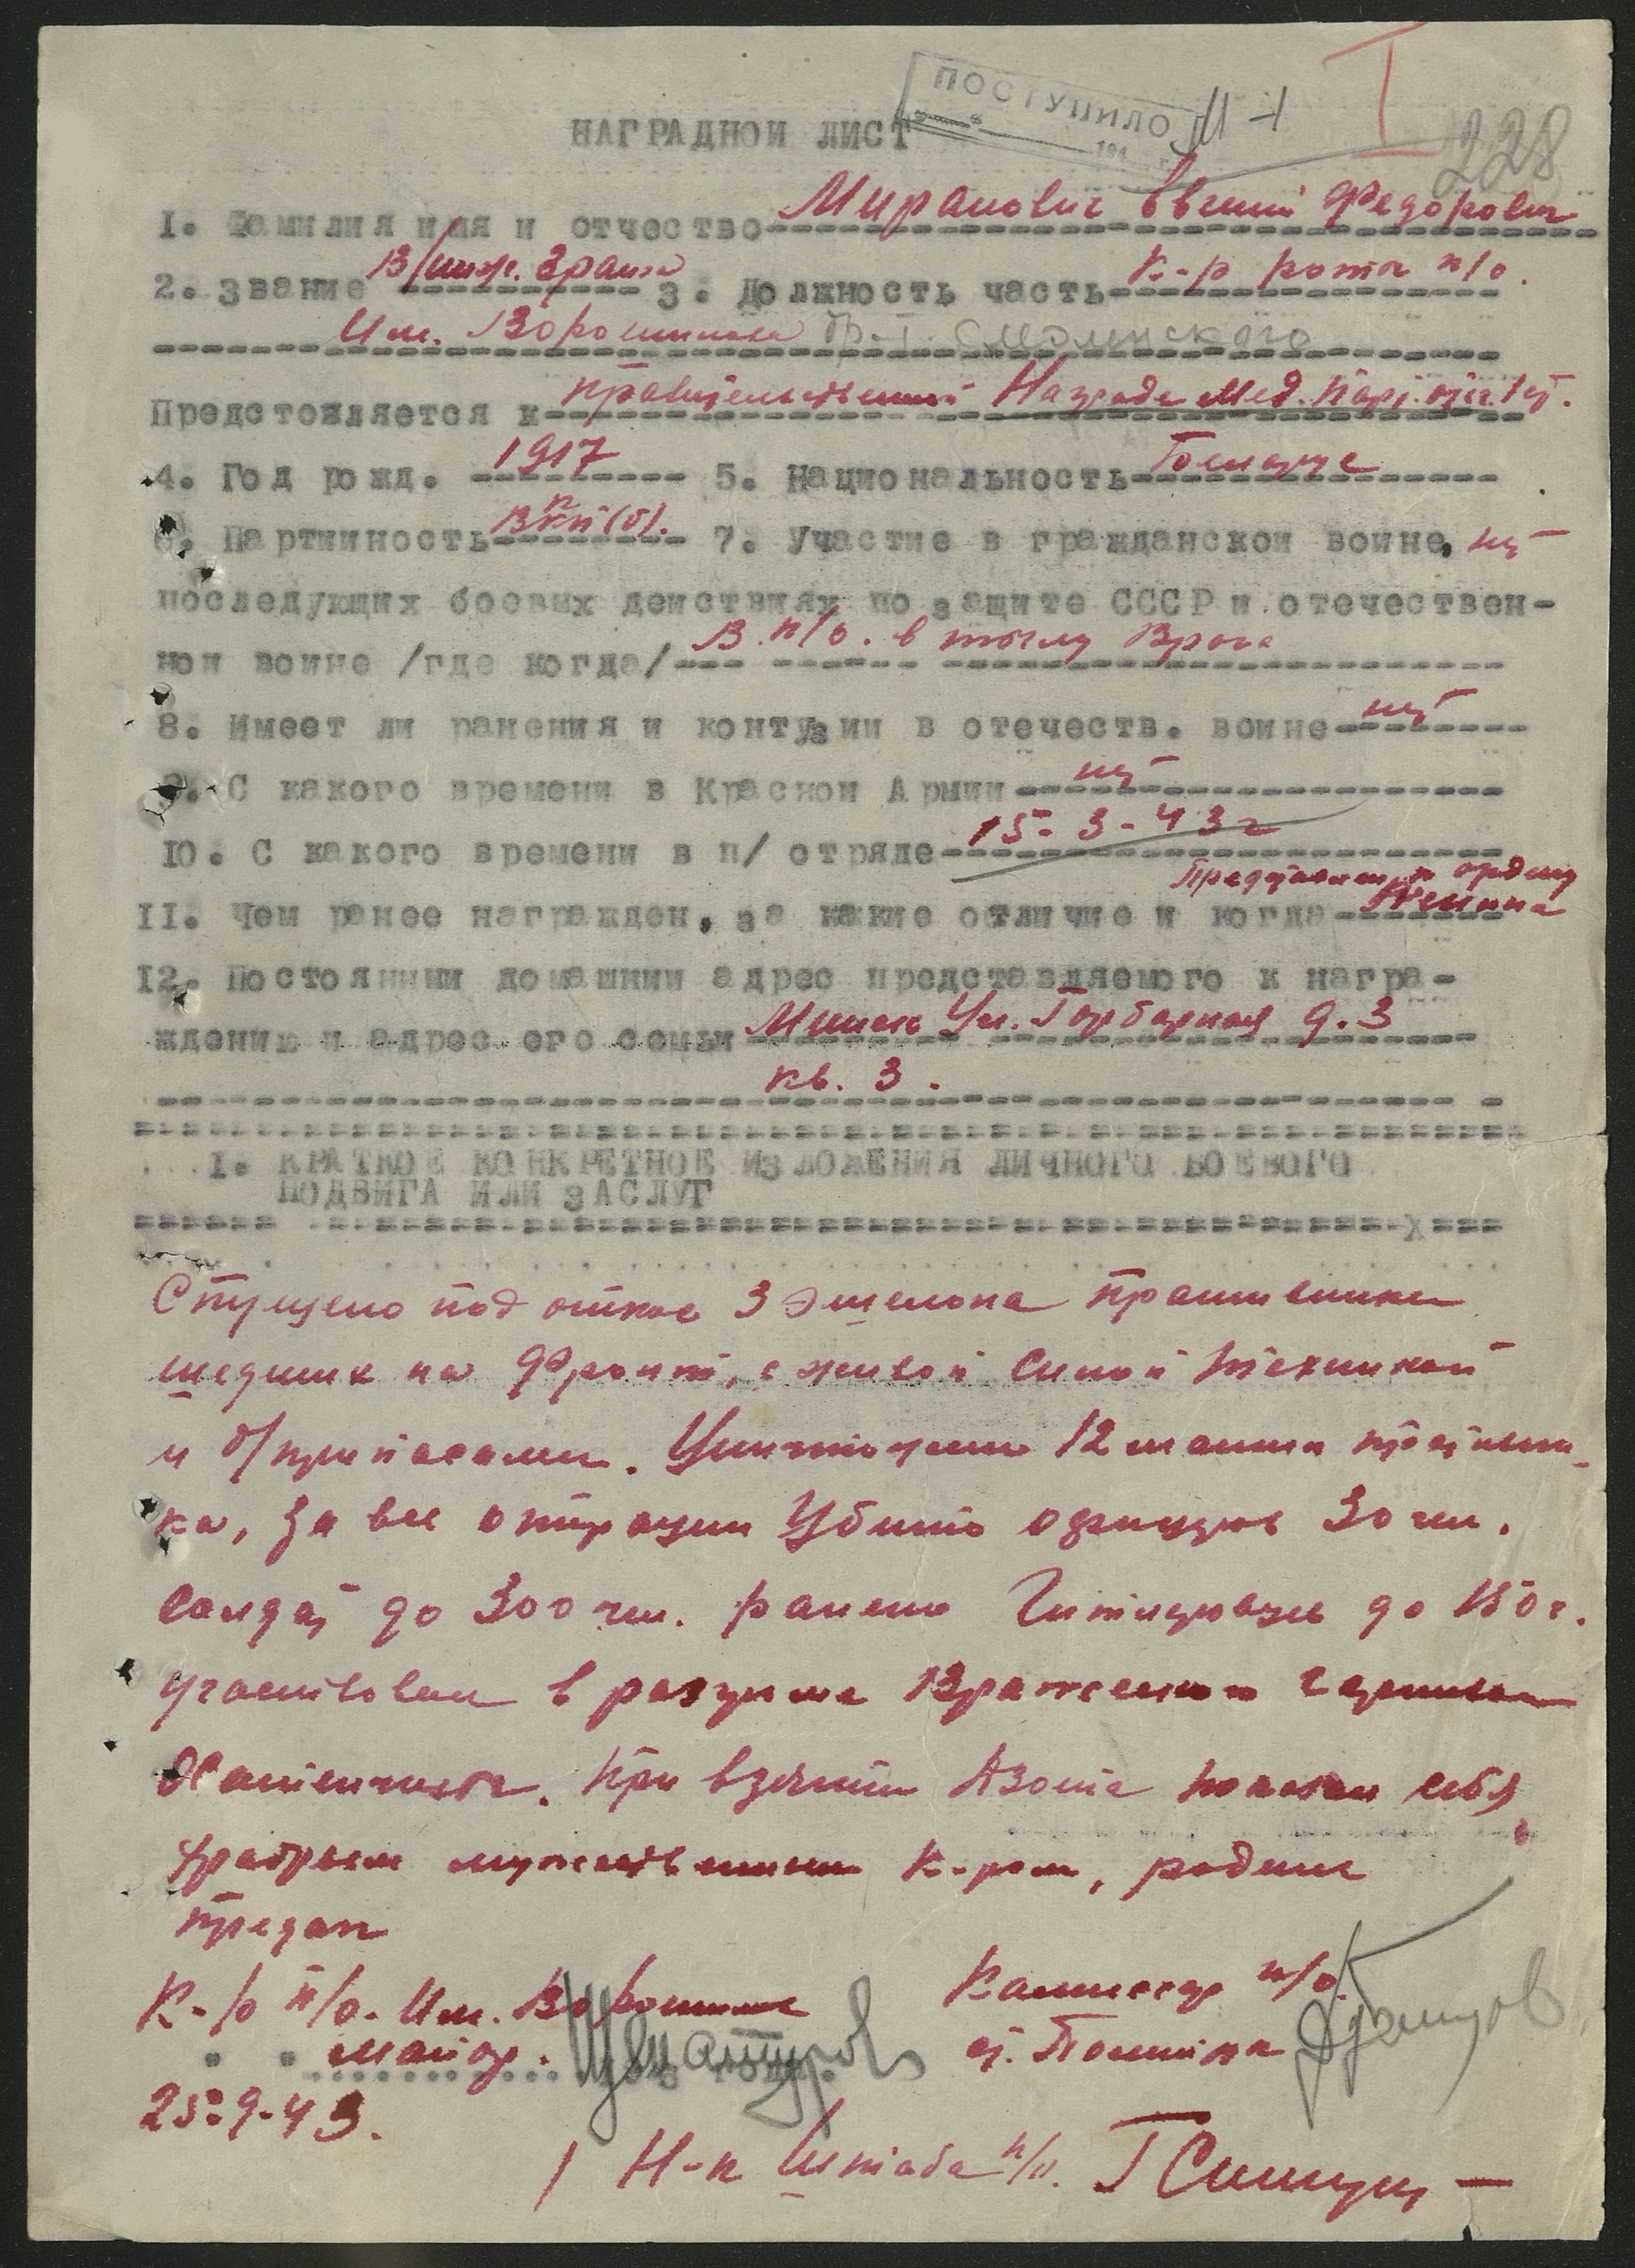 ПОСТУПИЛО
194 г.
I
228
НАГРАДНОЙ ЛИСТ
1. Фамилия имя и отчество Миранович Евгений Федорович
2. Звание В/инж. 3 ранга 3. Должность часть К-р роты п/о.
Им. Ворошилова бр-г. Смоленского
Предстовляется к правительственной Награде Мед. Парт. от. 1 ст.
4. Год рожд. 1917 5. Национальность
6. Партийность ВКП(б). 7. Участие в гражданской войне, нет
последующих боевых действиях по защите СССР и отечествен-
ной войне /где когда/ В п/о. в тылу Врага
8. Имеет ли ранения и контузии в отечеств. войне нет
9. С какого времени в Красной Армии нет
10. С какого времени в п/ отряде 15-3-43 г
Представлен к ордену
11. Чем ранее награжден, за какие отличие и когда Ленина
12. Постоянный домашний адрес представляемого к награ-
ждению и адрес его семьи Минск Ул. д. 3
кв. 3.
I. КРАТКОЕ КОНКРЕТНОЕ ИЗЛОЖЕНИЯ ЛИЧНОГО БОЕВОГО
ПОДВИГА ИЛИ ЗАСЛУГ
Спущено под откос 3 эшелона противника
шедших на Фронт, с живой силой техникой
и б/припасами. Уничтожено 12 машин противни-
ка, За все операции Убито офицеров 30 чел.
Солдат до 300 чел. ранено Гитлеровцев до 150 ч.
участвовал в разгроме Вражеского гарнизона
При взятии показал себя
храбрым мужественным К-ром, родине
предан
К-р п/о. Им. Ворошилова
майор.
Комиссар п/о.
25-9-43.
Н-к Штаба п/о.